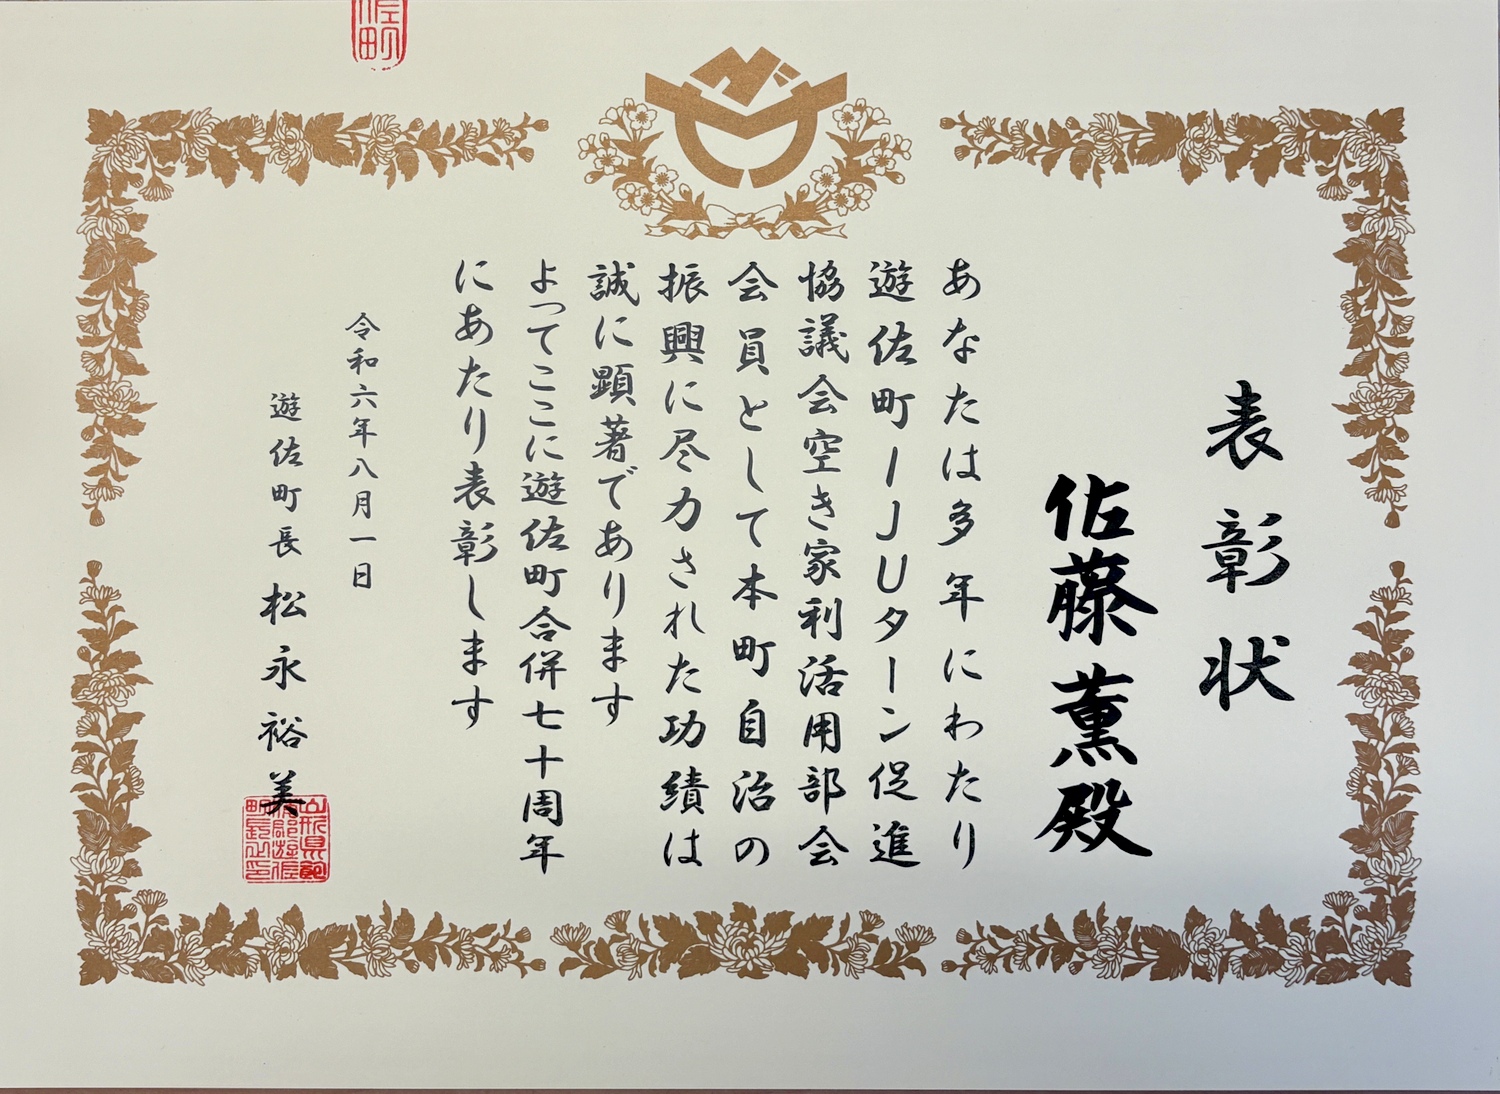 表彰状
佐藤薫殿
あなたは多年にわたり
遊佐町IJUターン促進
協議会空き家利活用部会
会員として本町自治の
振興に尽力された功績は
誠に顕著であります
よってここに遊佐町合併七十周年
にあたり表彰します
令和六年八月一日
遊佐町長 松永裕美